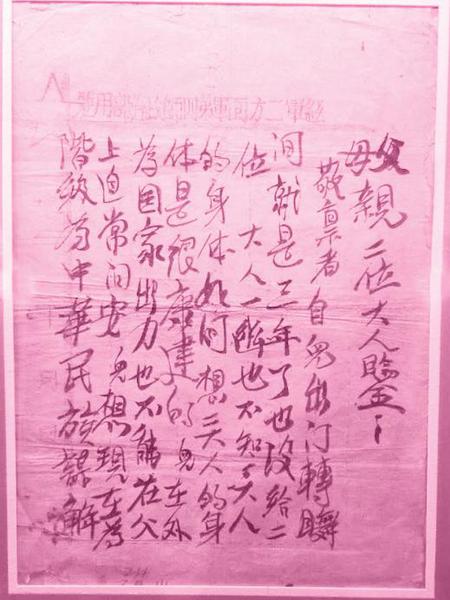 紅軍二方面軍
父母親二位大人
敬禀者自兒出门轉瞬
间就是三年了也没给二
位大人一也不知大人
的身体如何想二大人的身
体是很康建的兒在外
為国家出力也不能在父
上迫常问安兒想現在為
階級為中華民族謀解